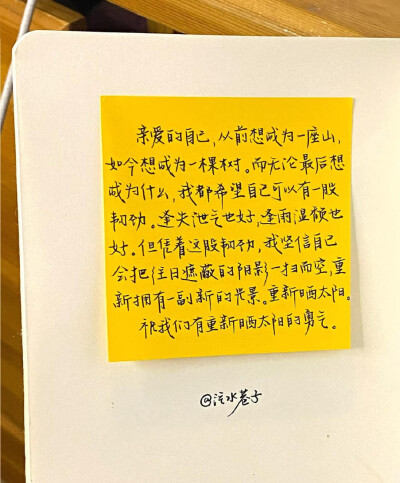 亲爱的自己,从前想成为一座山,
如今想成为一棵树。而无论最后想
成为什么,我都希望自己可以有一股
韧劲。逢失泄气也好,逢雨湿额也
好。但凭着这股韧劲,我坚信自己
会把往日遮蔽的阴影一扫而空,重
新拥有一副新的光景。重新晒太阳。
祝我们有重新晒太阳的勇气。
@泣水巷子